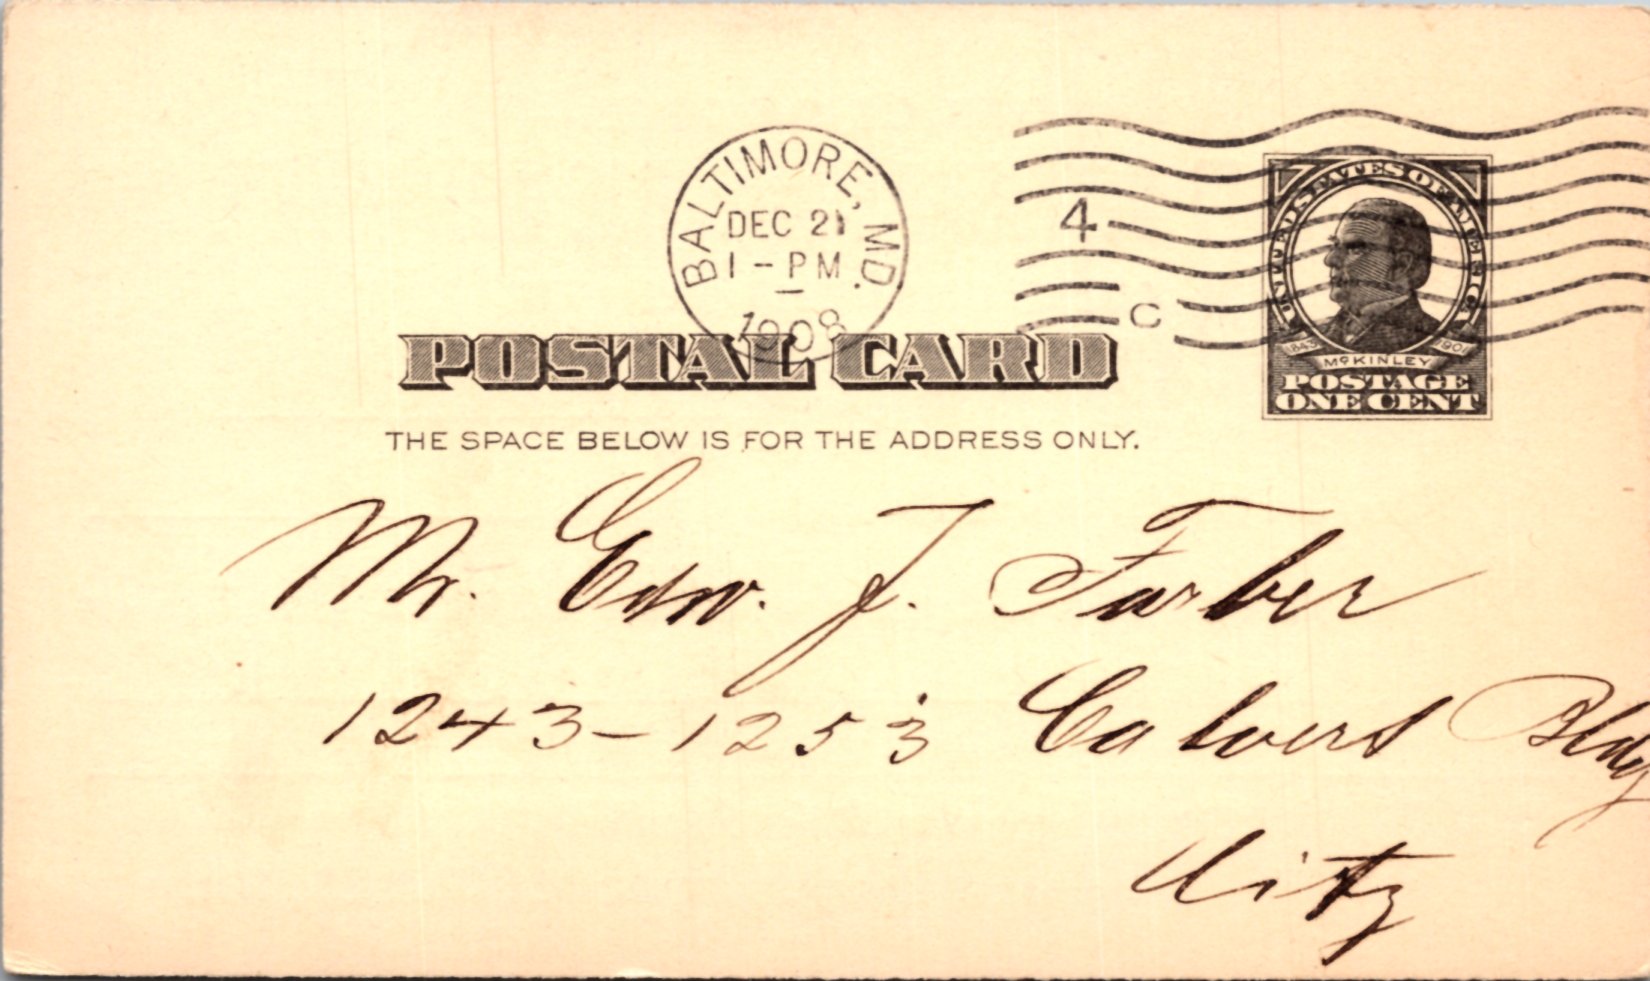 BALTIMORE, MD.
DEC 21
1-PM
1908
4
C
UNITED STATES OF AMERICA
1843 McKINLEY 1901
POSTAGE
ONE CENT
POSTAL CARD
THE SPACE BELOW IS FOR THE ADDRESS ONLY.
Mr. Edw. J. Farber
1243-1253 Calvert Bldg
City